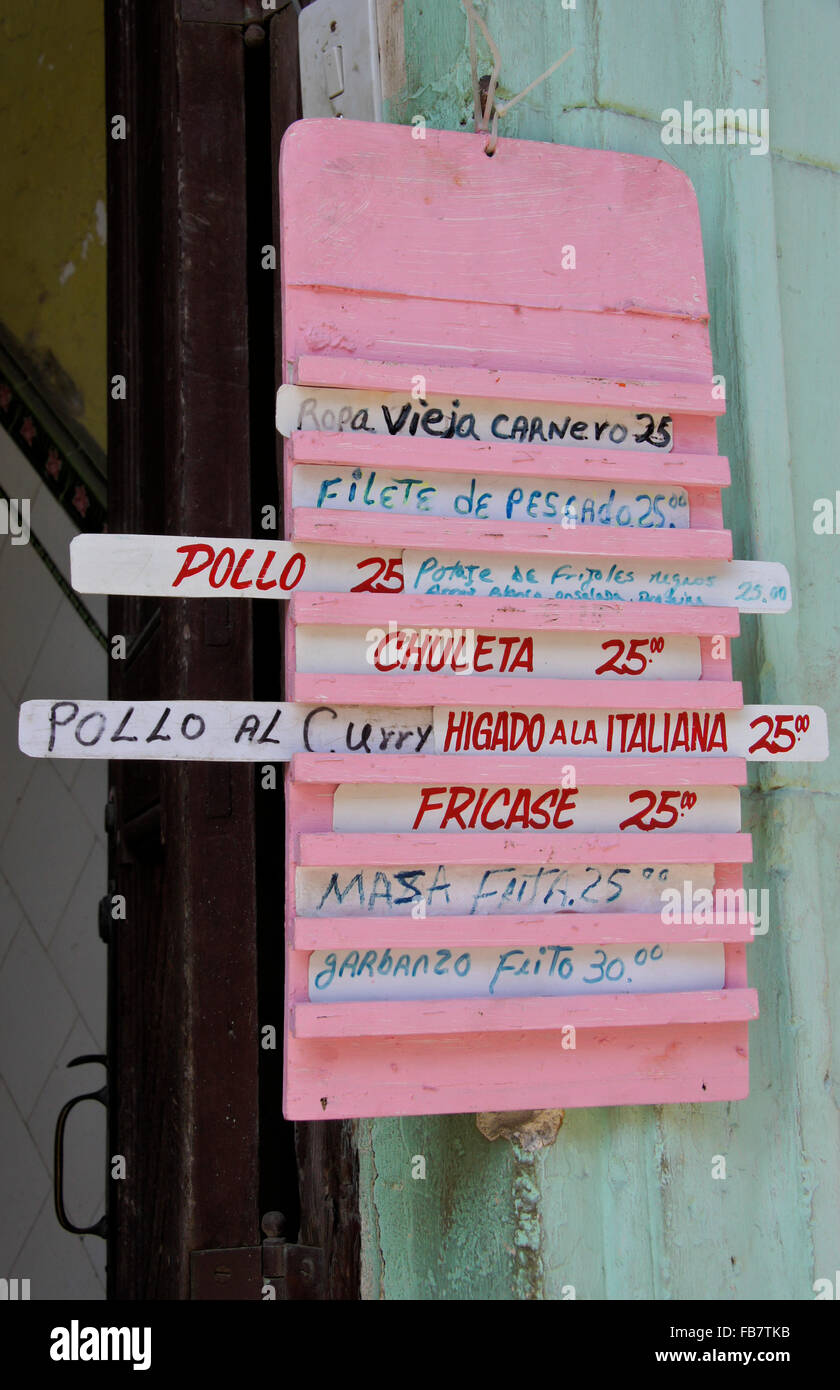 Ropa Vieja CARNero 25
FiLETE de PESCADO 25.00
POLLO 25
Potaje de Frijoles negros 25.00
Arroz Blanco ensalada
CHULETA 25.00
POLLO AL Curry
HIGADO A LA ITALIANA 25.00
FRICASE 25.00
MASA Frita. 25.00
gARBANZO Frito 30.00
alamy
Image ID: FB7TKB
www.alamy.com